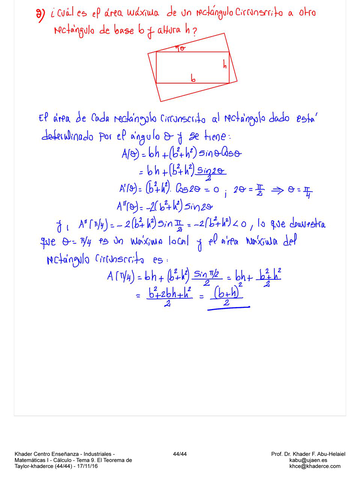 a) ¿Cuál es el área máxima de un rectángulo circunscrito a otro
rectángulo de base b y altura h?
θ
h
b
El área de cada rectángulo circunscrito al rectángulo dado está
determinado por el ángulo θ y se tiene:
A(θ) = bh + (b²+h²) sinθ cosθ
= bh + (b²+h²) sin2θ/2
A'(θ) = (b²+h²) · cos2θ = 0 ; 2θ = π/2 ⇒ θ = π/4
A''(θ) = -2(b²+h²) sin2θ
y, A''(π/4) = -2(b²+h²) sin π/2 = -2(b²+h²) < 0, lo que demuestra
que θ = π/4 es un máximo local y el área máxima del
rectángulo circunscrito es:
A(π/4) = bh + (b²+h²) sin π/2 / 2 = bh + (b²+h²)/2
= (b²+2bh+h²)/2 = (b+h)²/2
Khader Centro Enseñanza - Industriales -
Matemáticas I - Cálculo - Tema 9. El Teorema de
Taylor-khaderce (44/44) - 17/11/16
44/44
Prof. Dr. Khader F. Abu-Helaiel
kabu@ujaen.es
khce@khaderce.com